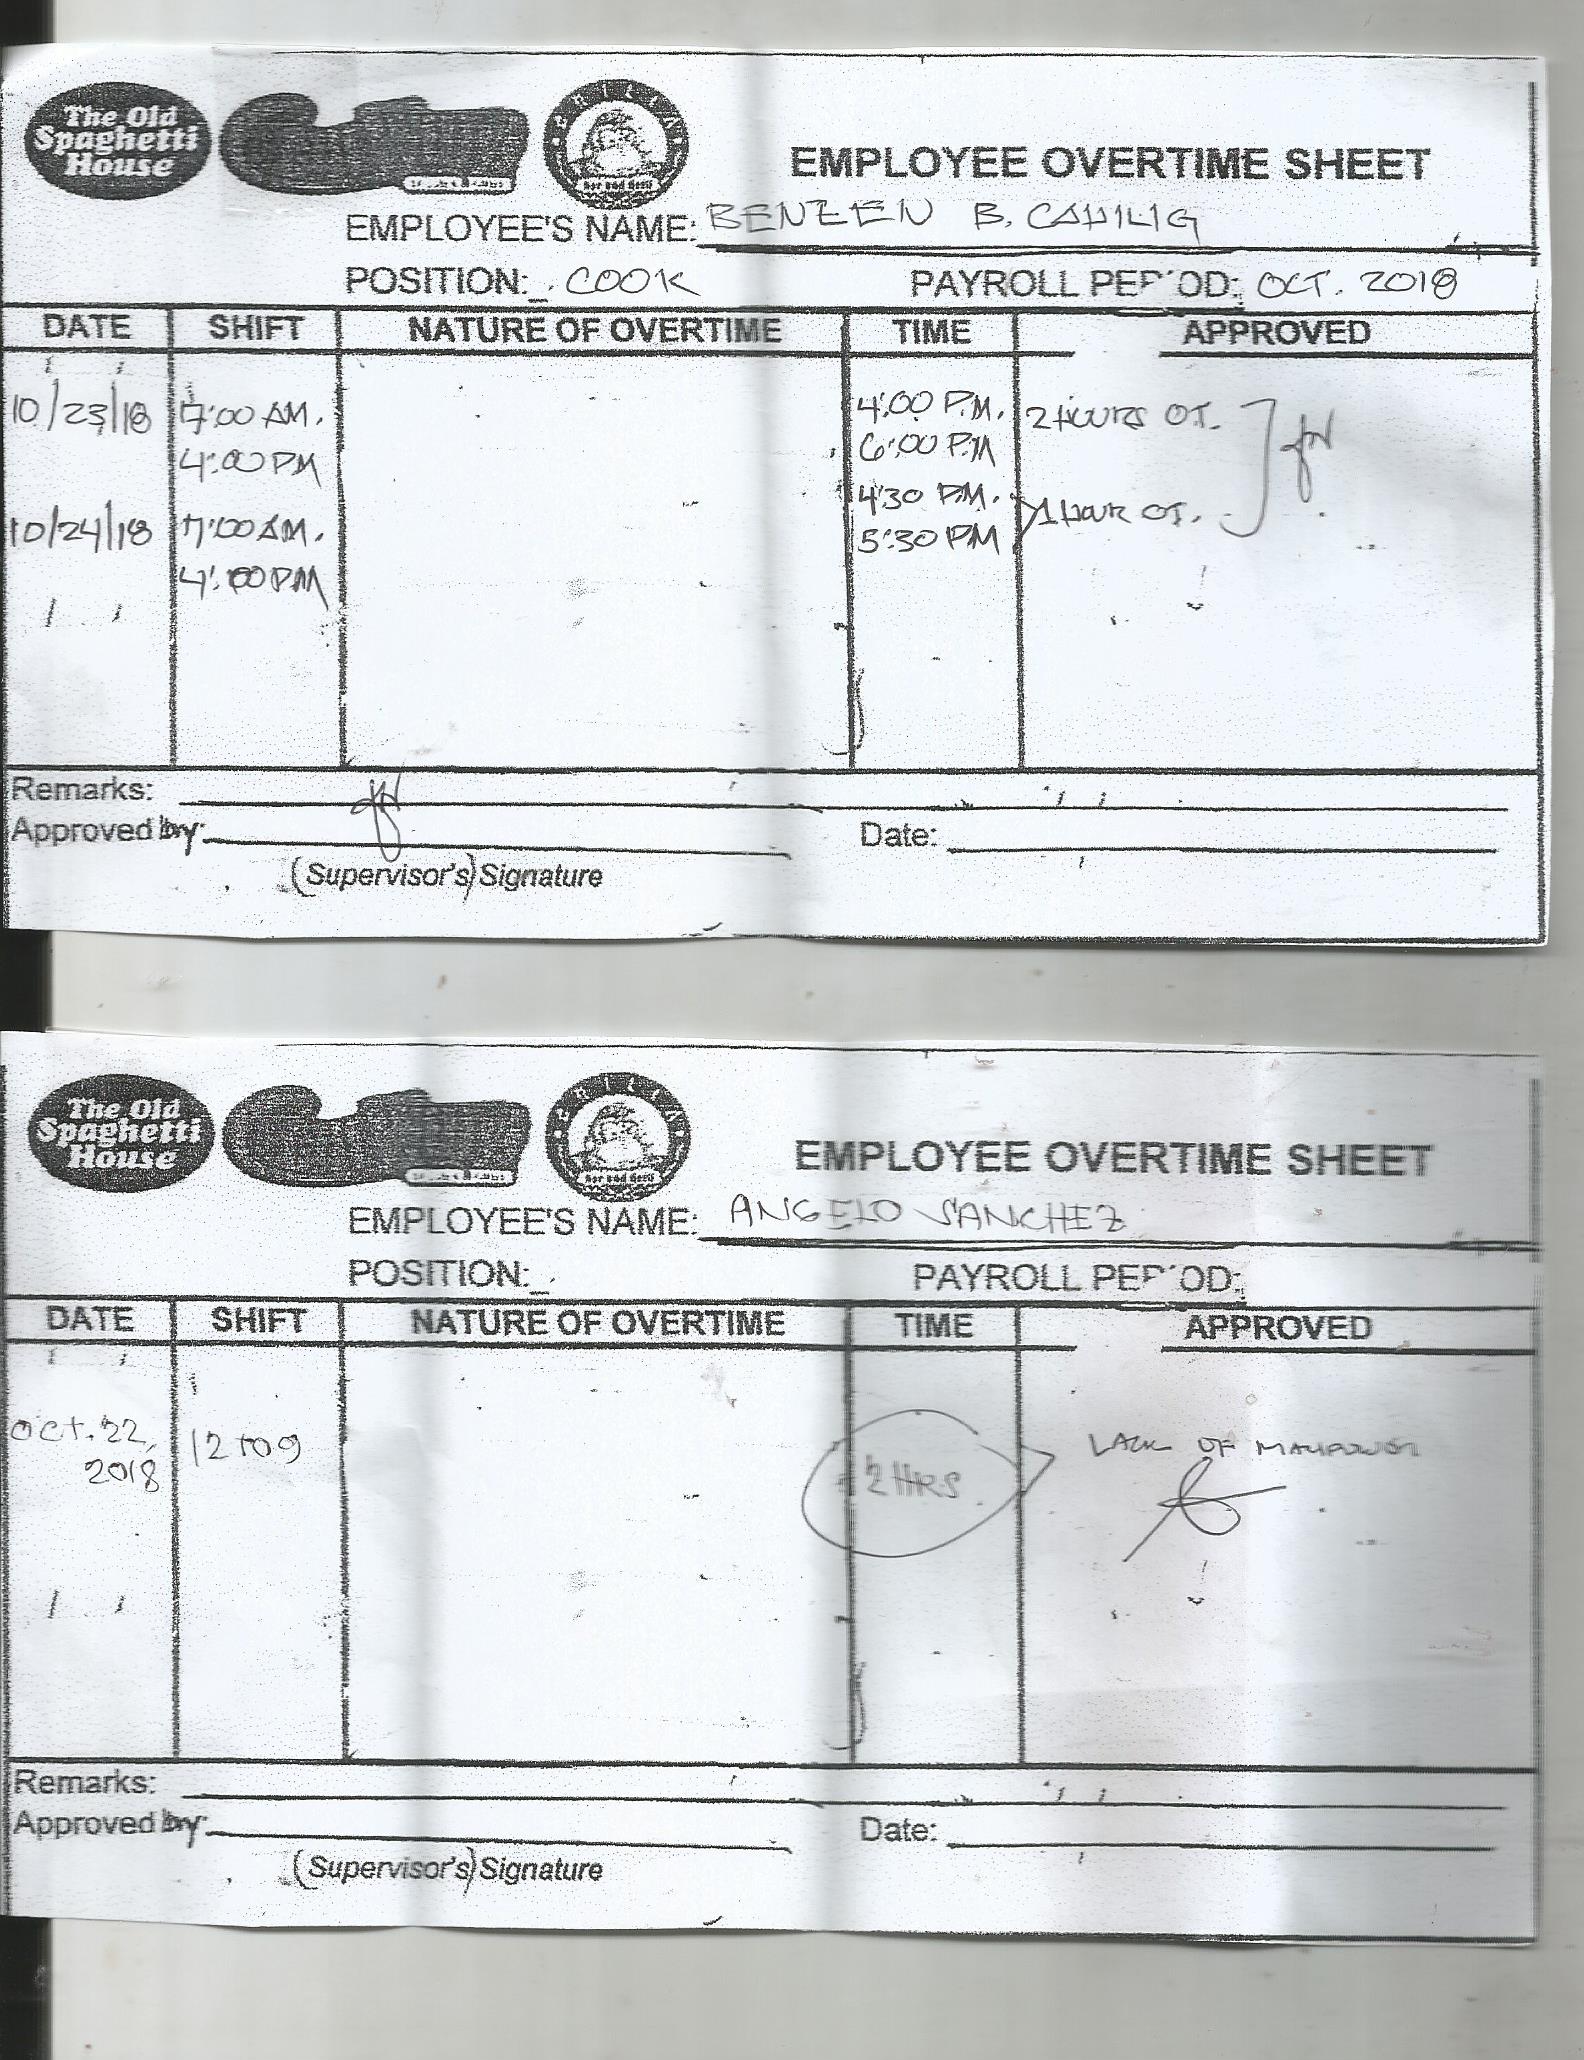 The Old
Spaghetti
House
EMPLOYEE OVERTIME SHEET
EMPLOYEE'S NAME: BENZEN B. CAHILIG
POSITION: COOK PAYROLL PERIOD: OCT. 2018
DATE SHIFT NATURE OF OVERTIME TIME APPROVED
10/23/18 7:00 AM. 4:00 P.M. 2 HOURS OT.
4:00 PM 6:00 P.M
4:30 P.M.
10/24/18 7:00 AM. 5:30 PM 1 HOUR OT.
4:00 PM
Remarks:
Approved by: Date:
(Supervisor's) Signature
The Old
Spaghetti
House
EMPLOYEE OVERTIME SHEET
EMPLOYEE'S NAME: ANGELO SANCHEZ
POSITION: PAYROLL PERIOD:
DATE SHIFT NATURE OF OVERTIME TIME APPROVED
OCT. 22, 12 TO 9 2 HRS LACK OF MANPOWER
2018
Remarks:
Approved by: Date:
(Supervisor's) Signature